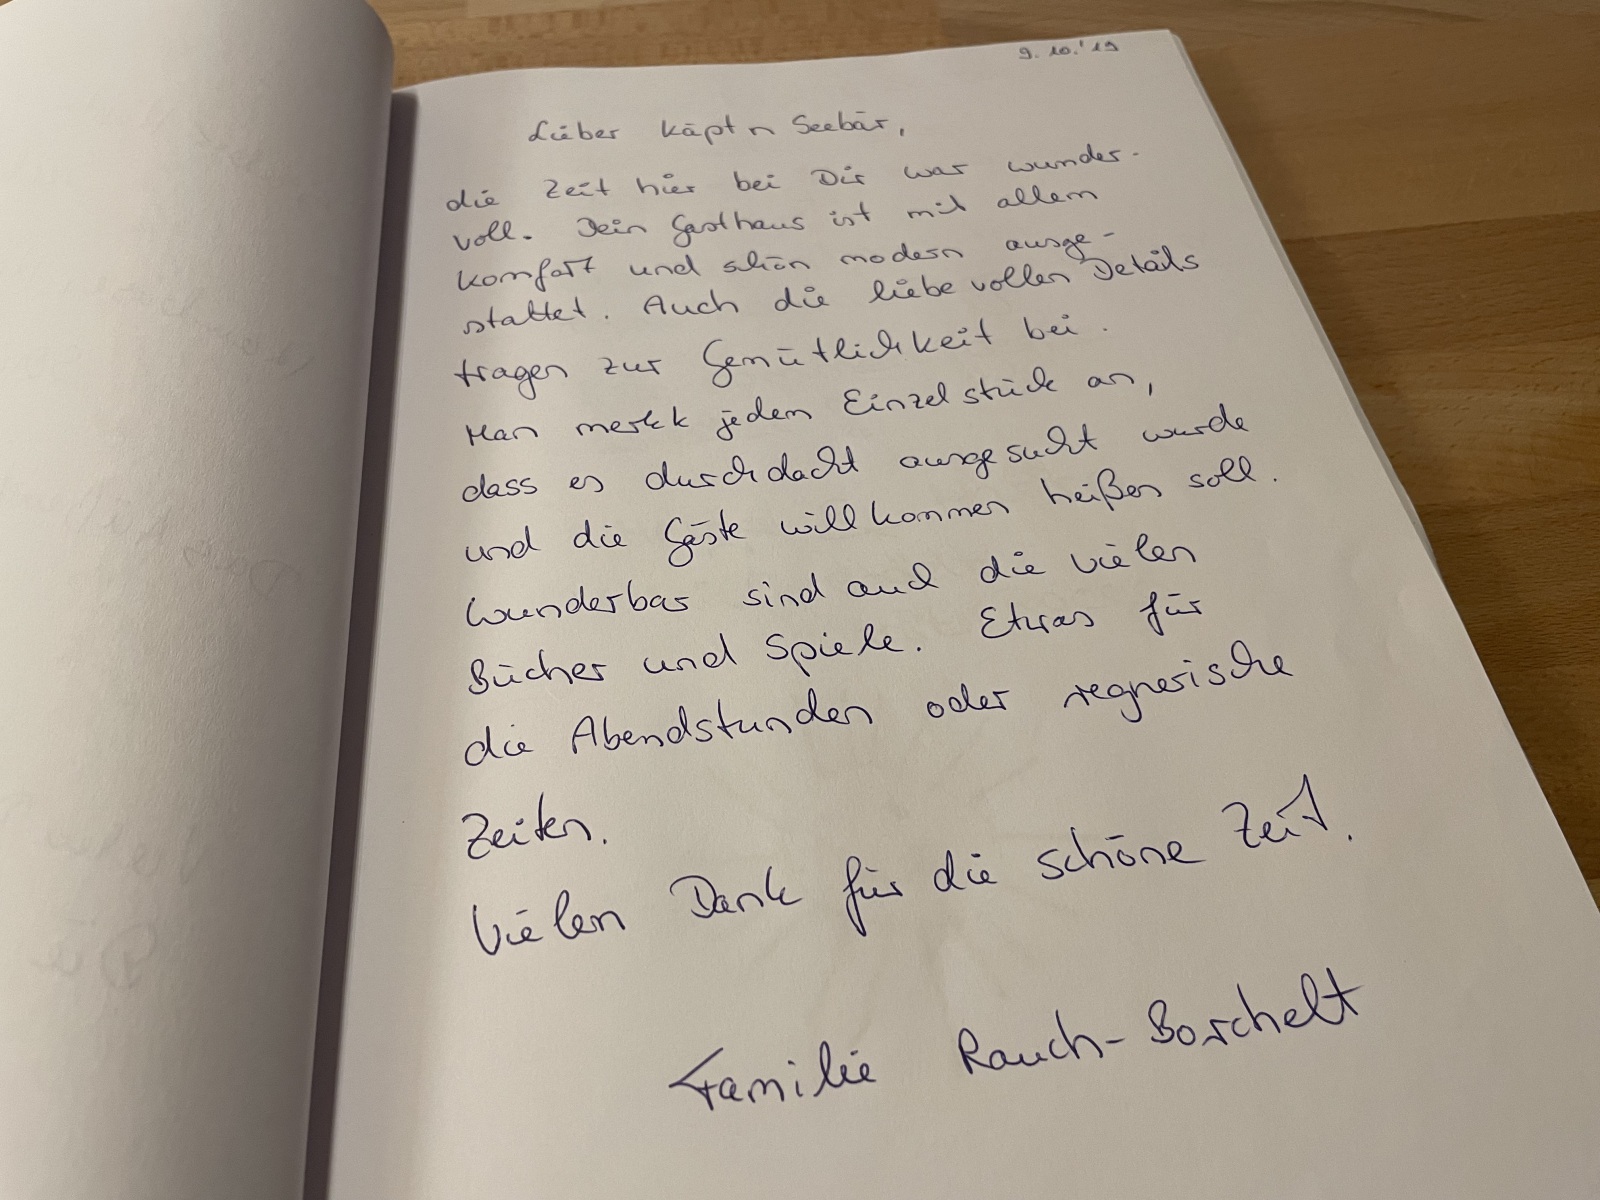 9.10.'19
Lieber Käpt'n Seebär,
die Zeit hier bei Dir war wunder-
voll. Dein Gasthaus ist mit allem
Komfort und schön modern ausge-
stattet. Auch die liebevollen Details
tragen zur Gemütlichkeit bei.
Man merkt jedem Einzelstück an,
dass es durchdacht ausgesucht wurde
und die Gäste willkommen heißen soll.
Wunderbar sind auch die vielen
Bücher und Spiele. Etwas für
die Abendstunden oder regnerische
Zeiten.
Vielen Dank für die schöne Zeit.
Familie Rauch-Borchelt